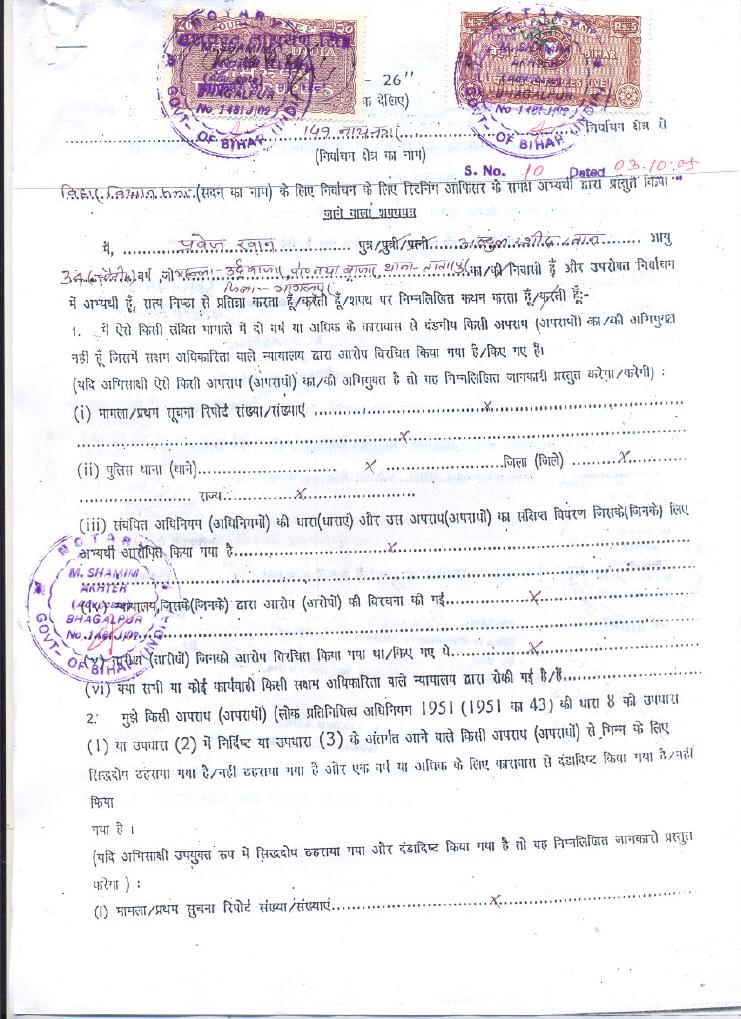 NOTARY
M. SHAMIM
AKHTER
(Advocate)
BHAGALPUR
No 1481J/09
GOVT- OF BIHAR (INDIA)
NOTARY
WELFARE STAMP
M. SHAMIM
AKHTER
BIHAR
BHAGALPUR
No 1481J/09
GOVT- OF BIHAR
- 26"
देखिए)
149 नाथनगर निर्वाचन क्षेत्र से
(निर्वाचन क्षेत्र का नाम)
S. No. 10 Dated 03.10.05
बिहार विधान सभा (सदन का नाम) के लिए निर्वाचन के लिए रिटर्निंग ऑफिसर के समक्ष अभ्यर्थी द्वारा प्रस्तुत किया
जाने वाला शपथपत्र
मैं, परवेज खान पुत्र/पुत्री/पत्नी अब्दुल रशीद खान आयु
34 (चौंतीस) वर्ष, जो मुहल्ला- उर्दू बाजार, थाना- तातारपुर का/की निवासी हूँ और उपरोक्त निर्वाचन
जिला- भागलपुर
में अभ्यर्थी हूँ, सत्य निष्ठा से प्रतिज्ञा करता हूँ/करती हूँ/शपथ पर निम्नलिखित कथन करता हूँ/करती हूँ:-
1. मैं ऐसे किसी लंबित मामाले में दो वर्ष या अधिक के कारावास से दंडनीय किसी अपराध (अपराधों) का/की अभियुक्त
नहीं हूँ जिसमें सक्षम अधिकारिता वाले न्यायालय द्वारा आरोप विरचित किया गया है/किए गए है।
(यदि अभिसाक्षी ऐसे किसी अपराध (अपराधों) का/की अभियुक्त है तो वह निम्नलिखित जानकारी प्रस्तुत करेगा/करेगी) :
(i) मामला/प्रथम सूचना रिपोर्ट संख्या/संख्याएं ......x......
......x......
(ii) पुलिस थाना (थाने)...... x ......जिला (जिले) ......x......
...... राज्य......x......
(iii) संबंधित अधिनियम (अधिनियमों) की धारा(धाराएं) और उस अपराध(अपराधों) का संक्षिप्त विवरण जिसके(जिनके) लिए
अभ्यर्थी आरोपित किया गया है......x......
NOTARY
M. SHAMIM
AKHTER
(Advocate)
BHAGALPUR
No. 1481J/09
GOVT- OF BIHAR (INDIA)
(iv) न्यायालय,जिसके(जिनके) द्वारा आरोप (आरोपों) की विरचना की गई......x......
(v) तारीख (तारीखों) जिनको आरोप विरचित किया गया था/किए गए थे......x......
(vi) क्या सभी या कोई कार्यवाही किसी सक्षम अधिकारिता वाले न्यायालय द्वारा रोकी गई है/हैं......
2. मुझे किसी अपराध (अपराधों) (लोक प्रतिनिधित्व अधिनियम 1951 (1951 का 43) की धारा 8 की उपधारा
(1) या उपधारा (2) में निर्दिष्ट या उपधारा (3) के अंतर्गत आने वाले किसी अपराध (अपराधों) से भिन्न के लिए
सिद्धदोष ठहराया गया है/नहीं ठहराया गया है और एक वर्ष या अधिक के लिए कारावास से दंडादिष्ट किया गया है/नहीं
किया
गया है ।
(यदि अभिसाक्षी उपयुक्त रूप में सिद्धदोष ठहराया गया और दंडादिष्ट किया गया है तो वह निम्नलिखित जानकारी प्रस्तुत
करेगा ) :
(i) मामला/प्रथम सुचना रिपोर्ट संख्या/संख्याएं......x......